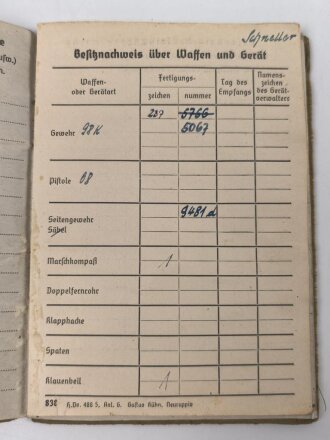 Schneller
Besitznachweis über Waffen und Gerät
Waffen-
oder Geräteart
Fertigungs-
zeichen
nummer
Tag des
Empfangs
Namens-
zeichen
des Gerät-
verwalters
237 5766
Gewehr 98K 5067
Pistole 08
Seitengewehr 9481 d
Säbel
Marschkompaß 1
Doppelfernrohr
Klapphacke
Spaten
Klauenbeil 1
H.Dv. 488 5, Anl. 6. Gustav Kühn, Neuruppin